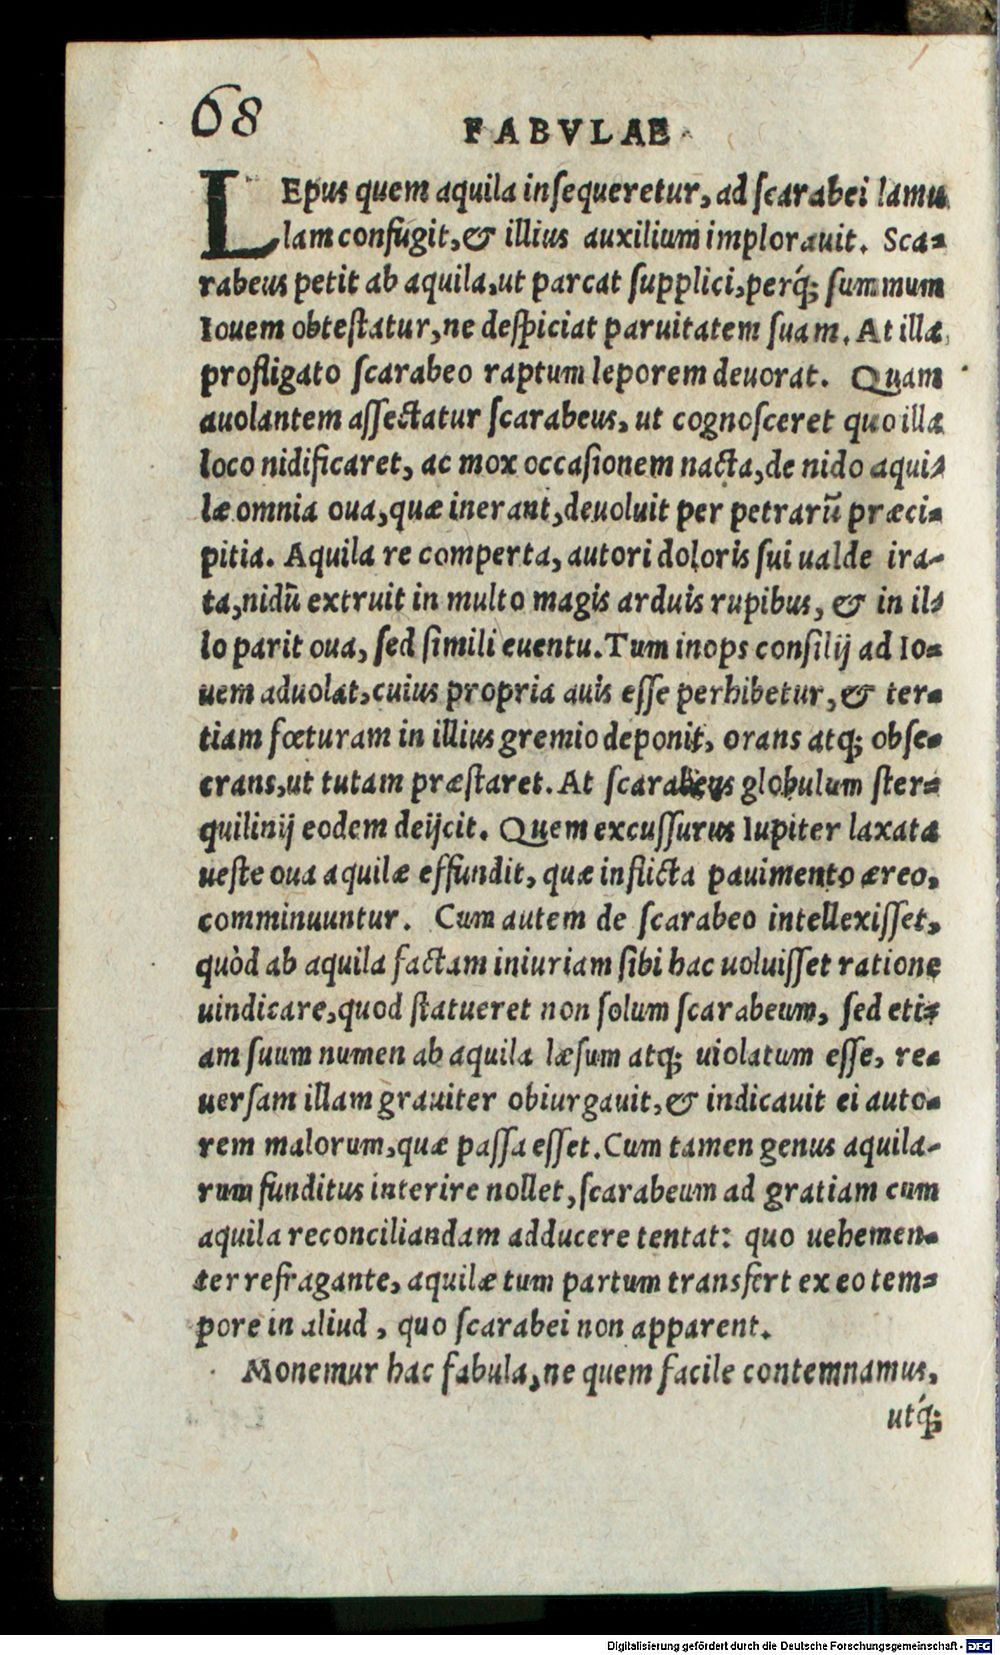 68
FABVLAE
LEpus quem aquila insequeretur, ad scarabei lamu
lam confugit, & illius auxilium implorauit. Sca-
rabeus petit ab aquila, ut parcat supplici, perq́; summum
Iouem obtestatur, ne despiciat paruitatem suam. At illa
profligato scarabeo raptum leporem deuorat. Quam
auolantem assectatur scarabeus, ut cognosceret quo illa
loco nidificaret, ac mox occasionem nacta, de nido aqui-
læ omnia oua, quæ inerant, deuoluit per petrarũ præci-
pitia. Aquila re comperta, autori doloris sui ualde ira-
ta, nidũ extruit in multo magis arduis rupibus, & in il-
lo parit oua, sed simili euentu. Tum inops consilij ad Io-
uem aduolat, cuius propria auis esse perhibetur, & ter-
tiam fœturam in illius gremio deponit, orans atq; obse-
crans, ut tutam præstaret. At scarabeus globulum ster-
quilinij eodem deijcit. Quem excussurus Iupiter laxata
ueste oua aquilæ effundit, quæ inflicta pauimento æreo,
comminuuntur. Cum autem de scarabeo intellexisset,
quòd ab aquila factam iniuriam sibi hac uoluisset ratione
uindicare, quod statueret non solum scarabeum, sed eti-
am suum numen ab aquila læsum atq; uiolatum esse, re-
uersam illam grauiter obiurgauit, & indicauit ei auto-
rem malorum, quæ passa esset. Cum tamen genus aquila-
rum funditus interire nollet, scarabeum ad gratiam cum
aquila reconciliandam adducere tentat: quo uehemen-
ter refragante, aquilæ tum partum transfert ex eo tem-
pore in aliud, quo scarabei non apparent.
Monemur hac fabula, ne quem facile contemnamus,
utq́;
Digitalisierung gefördert durch die Deutsche Forschungsgemeinschaft - DFG